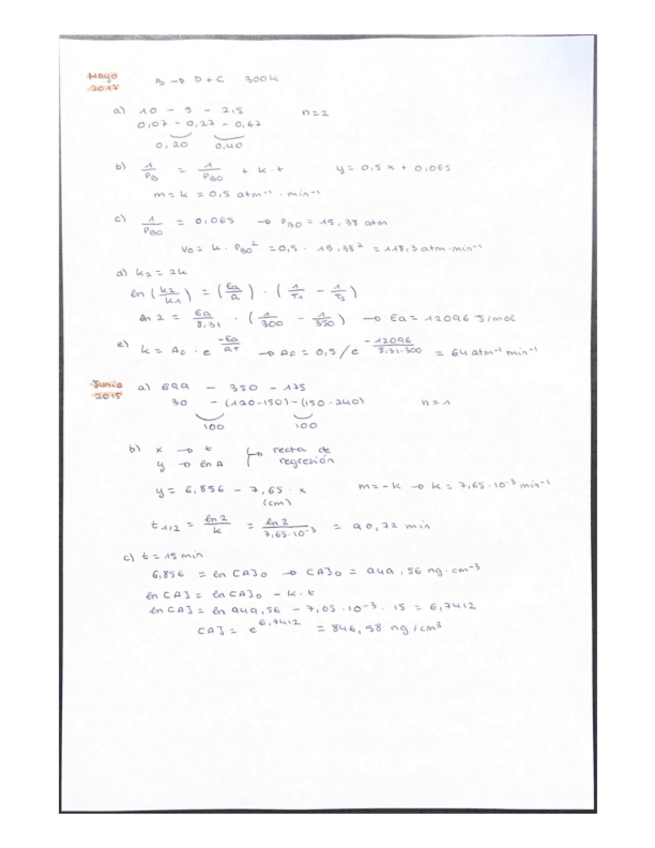 Mayo 2017 B → D + C 300K
a) 10 - 5 - 2,5 n=2
0,07 - 0,27 - 0,67
0,20 0,40
b) 1/P_B = 1/P_B0 + k·t y = 0,5x + 0,065
m = k = 0,5 atm⁻¹ · min⁻¹
c) 1/P_B0 = 0,065 → P_B0 = 15,38 atm
v0 = k · P_B0² = 0,5 · 15,38² = 118,3 atm·min⁻¹
d) k2 = 2k
ln (k2/k1) = (Ea/R) · (1/T1 - 1/T2)
ln 2 = Ea/8,31 · (1/300 - 1/350) → Ea = 12096 J/mol
e) k = A0 · e^(-Ea/RT) → A0 = 0,5/e^(-12096/8,31·300) = 64 atm⁻¹ min⁻¹
Junio 2015 a) 699 - 350 - 175
30 - (120-150) - (150-240) n=1
100 100
b) x → t
y → ln A recta de regresión
y = 6,856 - 7,65 · x m = -k → k = 7,65·10⁻³ min⁻¹
(cm)
t1/2 = ln 2/k = ln 2/7,65·10⁻³ = 90,72 min
c) t = 15 min
6,856 = ln [A]0 → [A]0 = 949,56 ng·cm⁻³
ln [A] = ln [A]0 - k·t
ln [A] = ln 949,56 - 7,65·10⁻³ · 15 = 6,7412
[A] = e^6,7412 = 846,58 ng/cm³